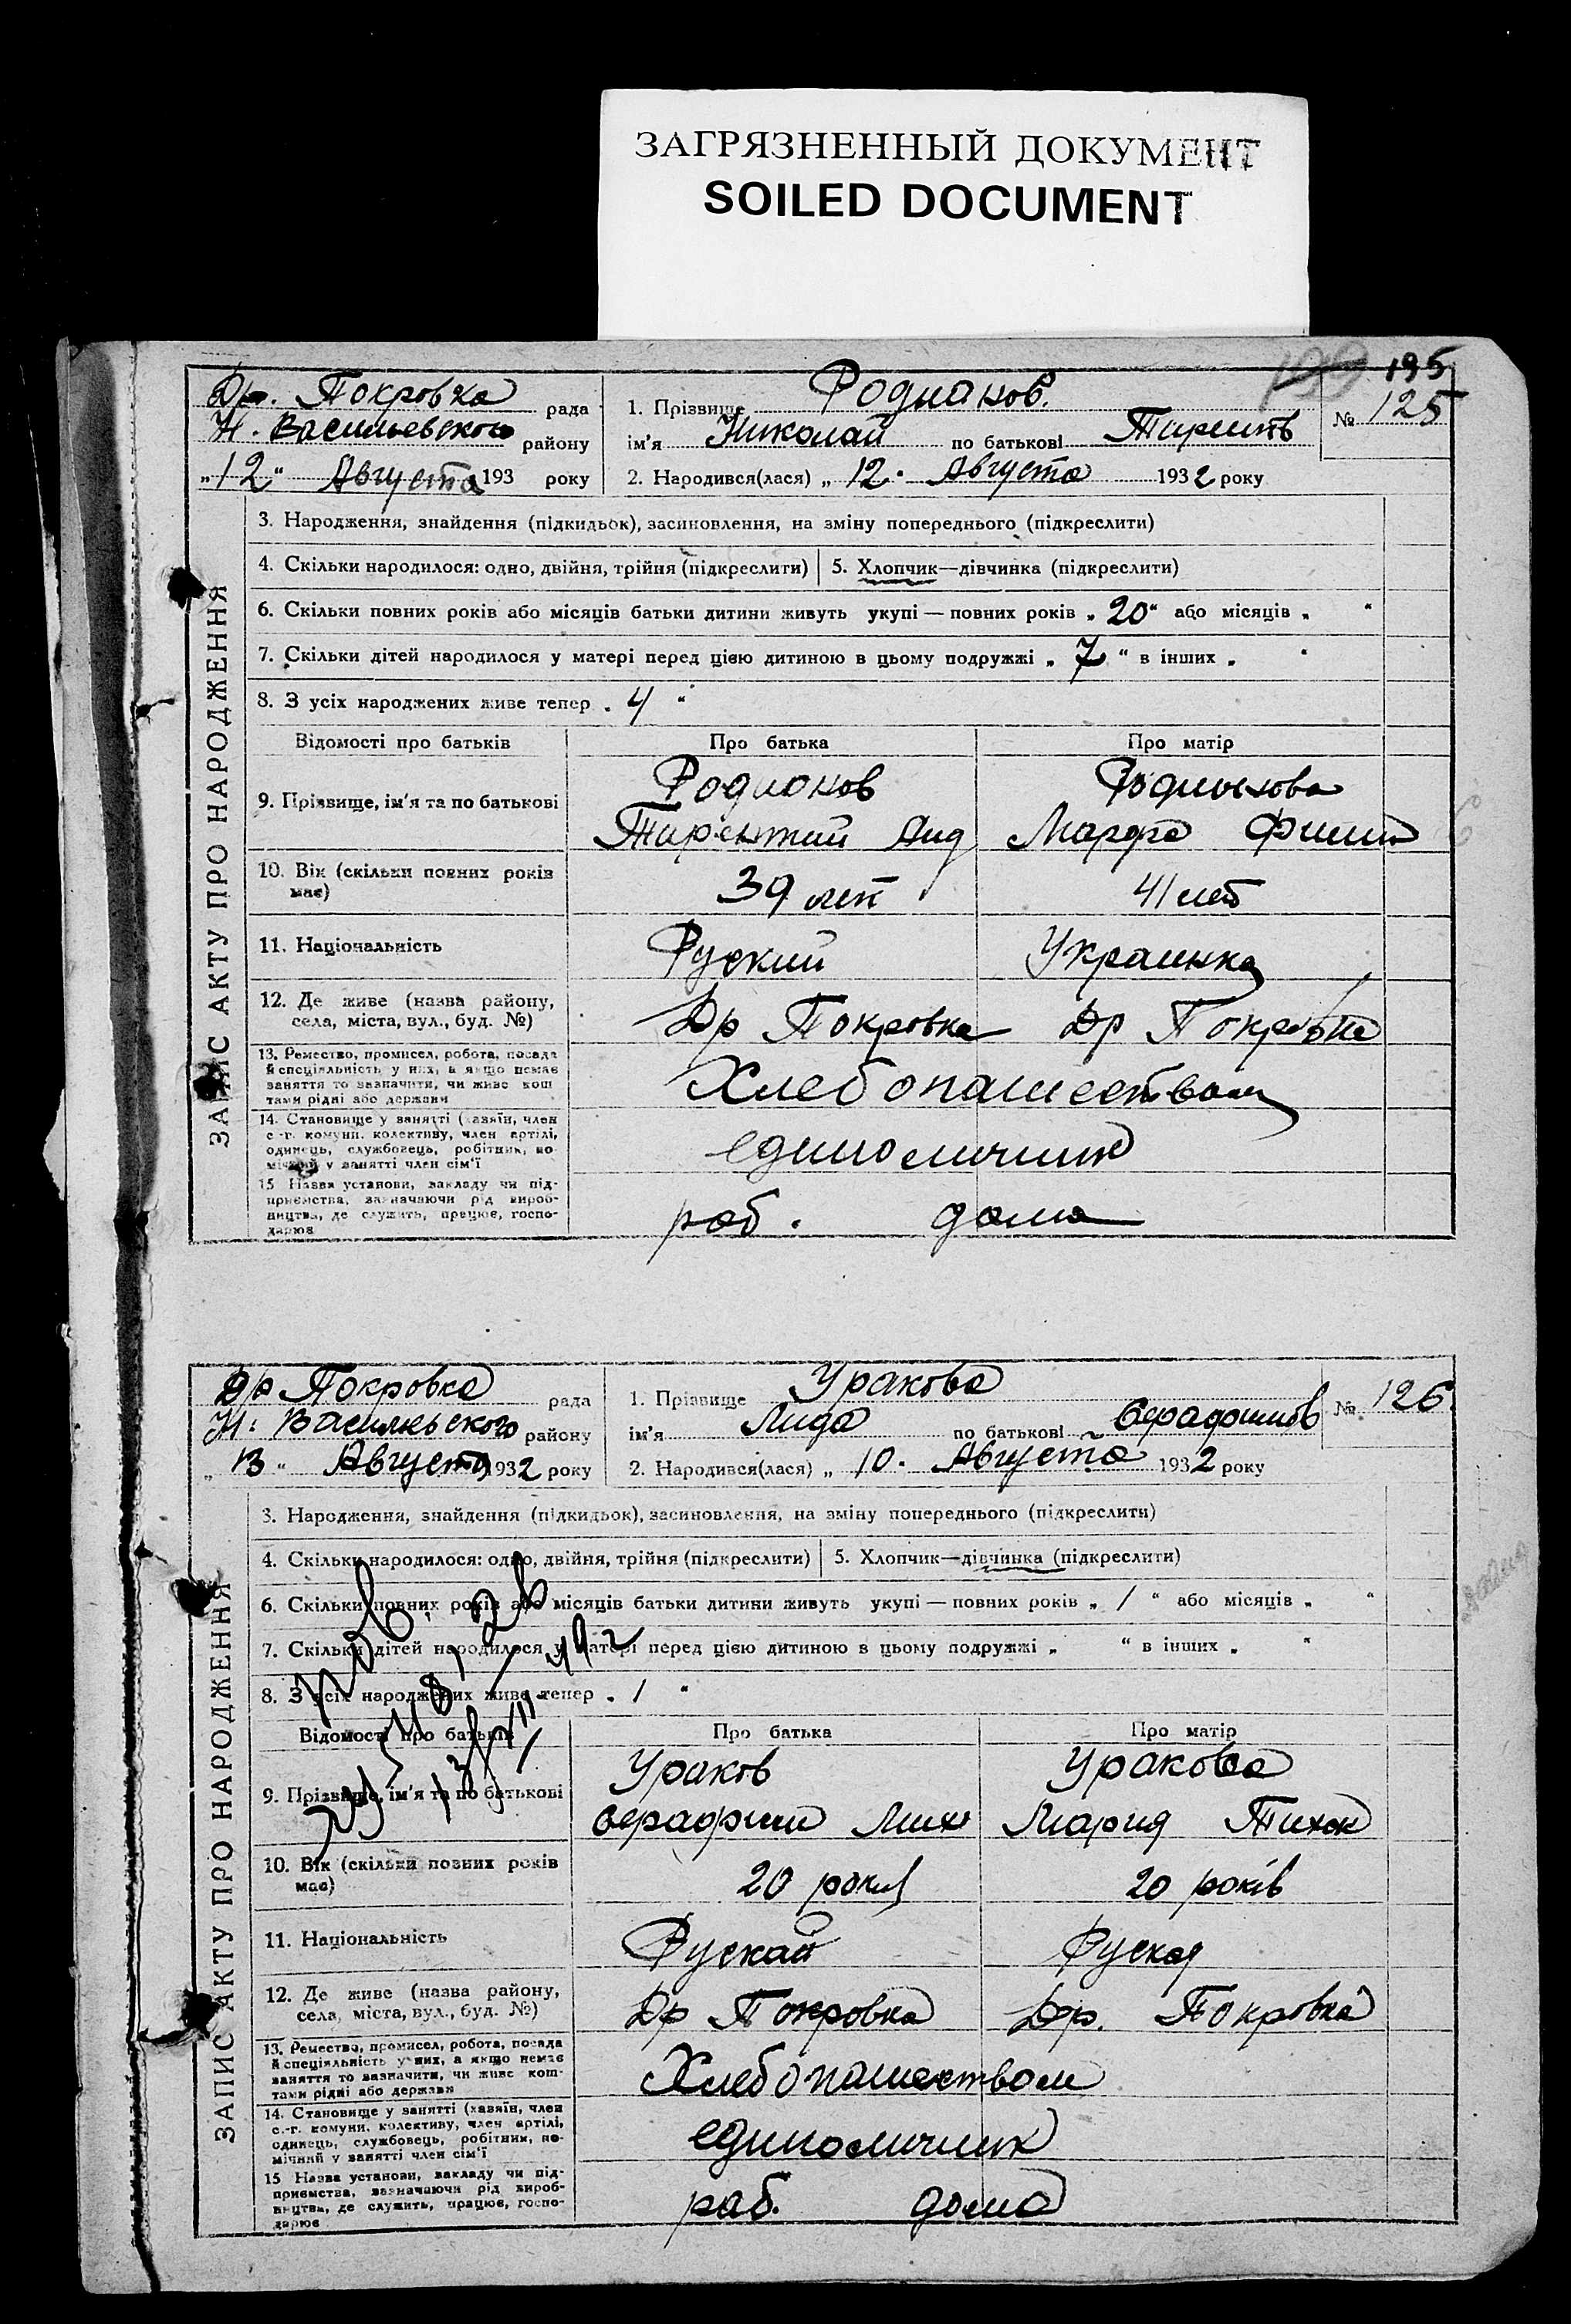 ЗАГРЯЗНЕННЫЙ ДОКУМЕНТ
SOILED DOCUMENT
195
Др. Покровка рада
Н. Васильевского району
„12“ Августа 193 року
1. Прізвище Родионов.
ім'я Николай по батькові Тирентъ
2. Народився(лася) „12. Августа 1932 року
№ 125
ЗАПИС АКТУ ПРО НАРОДЖЕННЯ
3. Народження, знайдення (підкидьок), засиновлення, на зміну попереднього (підкреслити)
4. Скільки народилося: одно, двійня, трійня (підкреслити) 5. Хлопчик—дівчинка (підкреслити)
6. Скільки повних років або місяців батьки дитини живуть укупі — повних років „20“ або місяців „ “
7. Скільки дітей народилося у матері перед цією дитиною в цьому подружжі „7“ в інших „ “
8. З усіх народжених живе тепер „4“
Відомості про батьків Про батька Про матір
9. Прізвище, ім'я та по батькові
Родионов Родионова
Тирентий Анд Марфа Филип
10. Вік (скільки повних років має)
39 лет 41 лет
11. Національність Руский Украинка
12. Де живе (назва району, села, міста, вул., буд. №)
Др Покровка Др Покровка
13. Ремество, промисел, робота, посада
й спеціяльність у них, а якщо немає
заняття то зазначити, чи живе кош
тами рідні або держави
Хлебопашеством
14. Становище у занятті (хазяїн, член
с.-г. комуни, колективу, член артілі,
одинець, службовець, робітник, по-
мічний у занятті член сім'ї
единоличник
15 Назва установи, закладу чи під-
приємства, зазначаючи рід вироб-
ництва, де служить, працює, госпо-
дарює
раб. дома
Др Покровка рада
Н. Васильевского району
„13“ Августа 1932 року
1. Прізвище Уракова
ім'я Лида по батькові Серафимов
2. Народився(лася) „10. Августа 1932 року
№ 126.
ЗАПИС АКТУ ПРО НАРОДЖЕННЯ
3. Народження, знайдення (підкидьок), засиновлення, на зміну попереднього (підкреслити)
4. Скільки народилося: одно, двійня, трійня (підкреслити) 5. Хлопчик—дівчинка (підкреслити)
6. Скільки повних років або місяців батьки дитини живуть укупі — повних років „1“ або місяців „ “
7. Скільки дітей народилося у матері перед цією дитиною в цьому подружжі „ “ в інших „ “
8. З усіх народжених живе тепер „1“
Відомості про батьків Про батька Про матір
9. Прізвище, ім'я та по батькові
Ураков Уракова
Серафим Мих Мария Тихон
10. Вік (скільки повних років має)
20 років 20 років
11. Національність Рускай Руская
12. Де живе (назва району, села, міста, вул., буд. №)
Др Покровка Др. Покровка
13. Ремество, промисел, робота, посада
й спеціяльність у них, а якщо немає
заняття то зазначити, чи живе кош-
тами рідні або держави
Хлебопашеством
14. Становище у занятті (хазяїн, член
с.-г. комуни, колективу, член артілі,
одинець, службовець, робітник, по-
мічний у занятті член сім'ї
единоличник
15 Назва установи, закладу чи під-
приємства, зазначаючи рід вироб-
ництва, де служить, працює, госпо-
дарює
раб. дома